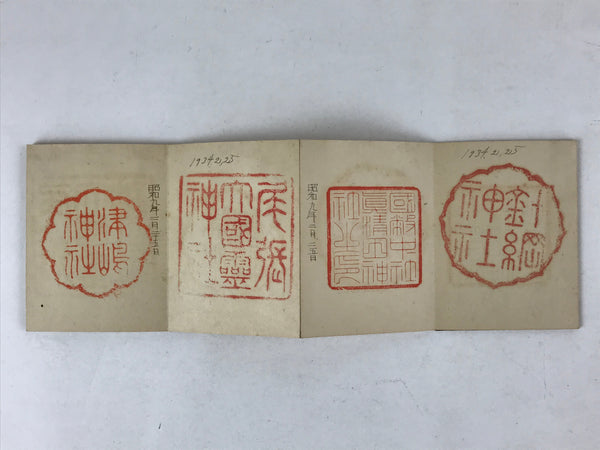 1934.2.25
針綱
神社
國幣中社
眞清田神
社之印
昭和九年二月二五日
1934.2.25
尾張
大國靈
神社
昭和九年二月二五日
津嶋
神社